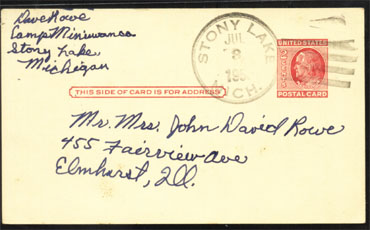 Dave Rowe
Camp Miniwanca
Stony Lake
Michigan
STONY LAKE
JUL
MICH.
UNITED STATES
POSTAL CARD
THIS SIDE OF CARD IS FOR ADDRESS
Mr. Mrs. John David Rowe
455 Fairview Ave
Elmhurst, Ill.